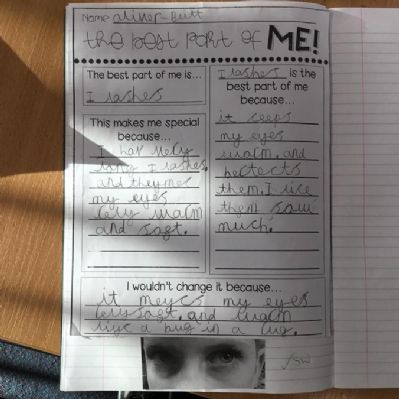 Name
the best part of ME!
The best part of me is...
I lashes
This makes me special
because...
I hav very
long I lashes.
and they mec
my eyes
very warm
and soft.
I lashes is the
best part of me
because...
it ceeps
my eyes
warm. and
them. I like
them sow
much.
I wouldn't change it because...
it meycs my eyes
very soft. and warm
like a hug in a